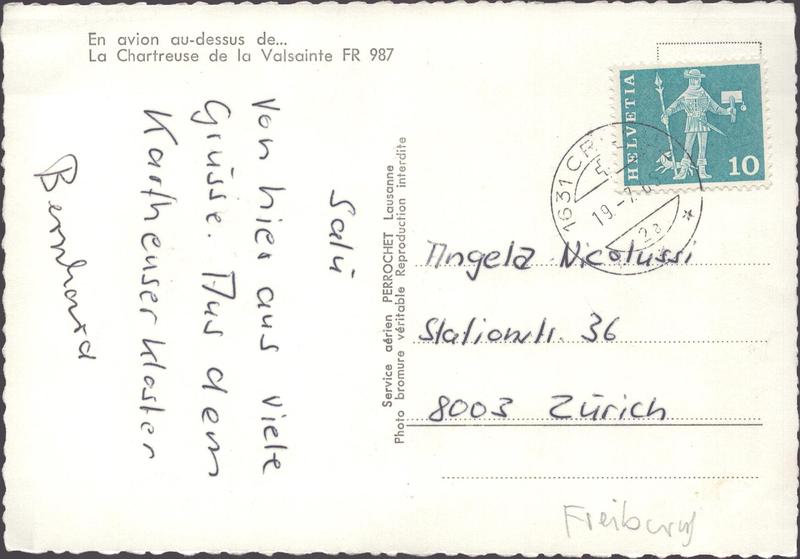 En avion au-dessus de...
La Chartreuse de la Valsainte FR 987
Salü
Von hier aus viele
Grüsse. Aus dem
Kartheuser Kloster
Bernhard
Service aérien PERROCHET Lausanne
Photo bromure véritable Reproduction interdite
HELVETIA
10
1631 CR
19.-7.
2a
Angela Nicolussi
Stationstr. 36
8003 Zürich
Freiburg